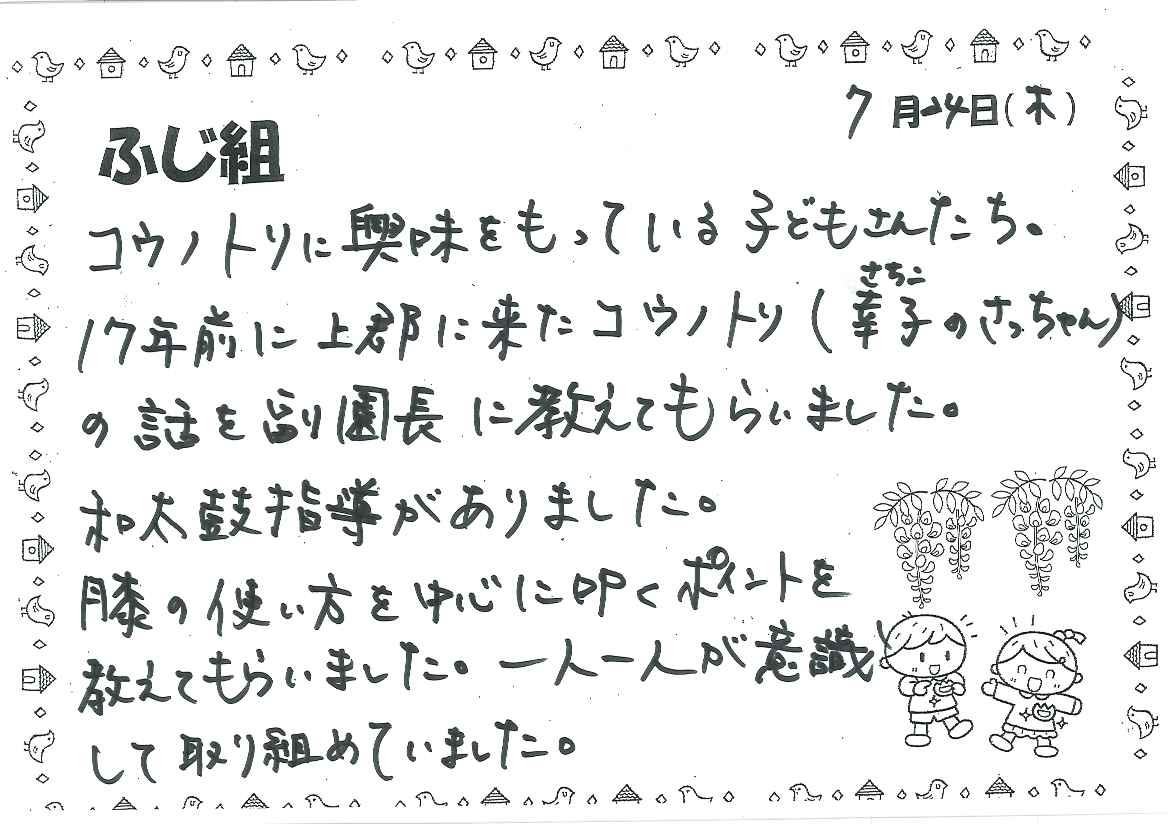 7月24日(木)
ふじ組
コウノトリに興味をもっている子どもさんたち。
さちこ
17年前に上郡に来たコウノトリ(幸子のさっちゃん)
の話を副園長に教えてもらいました。
和太鼓指導がありました。
膝の使い方を中心に叩くポイントを
教えてもらいました。一人一人が意識
して取り組めていました。